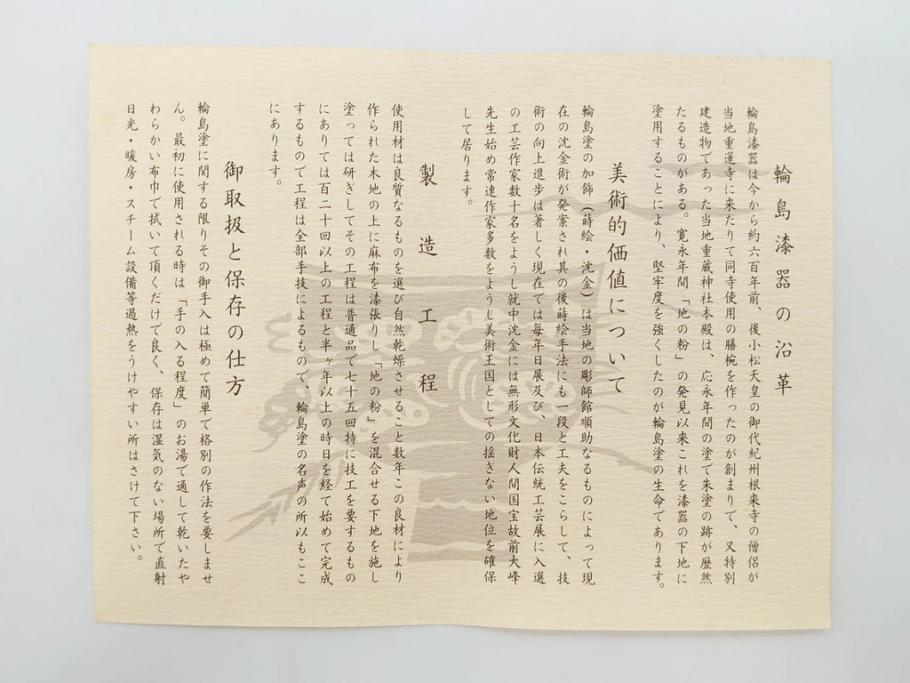 輪島漆器の沿革
輪島漆器は今から約六百年前、後小松天皇の御代紀州根来寺の僧侶が
当地重蓮寺に来たりて同寺使用の膳椀を作ったのが創まりで、又特別
建造物であった当地重蔵神社本殿は、応永年間の塗で朱塗の跡が歴然
たるものがある。寛永年間「地の粉」の発見以来これを漆器の下地に
塗用することにより、堅牢度を強くしたのが輪島塗の生命であります。
美術的価値について
輪島塗の加飾(蒔絵・沈金)は当地の彫師館順助なるものによって現
在の沈金術が発案され其の後蒔絵手法にも一段と工夫をこらして、技
術の向上進歩は著しく現在では毎年日展及び、日本伝統工芸展に入選
の工芸作家数十名をようし就中沈金には無形文化財人間国宝故前大峰
先生始め常連作家多数をようし美術王国としての揺ぎない地位を確保
して居ります。
製造工程
使用材は良質なるものを選び自然乾燥させること数年この良材により
作られた木地の上に麻布を漆張りし「地の粉」を混合せる下地を施し
塗っては研ぎしてその工程は普通品で七十五回特に技工を要するもの
にありては百二十回以上の工程と半ヶ年以上の時日を経て始めて完成
するもので工程は全部手技によるもので、輪島塗の名声の所以もここ
にあります。
御取扱と保存の仕方
輪島塗に関する限りその御手入は極めて簡単で格別の作法を要しませ
ん。最初に使用される時は「手の入る程度」のお湯で通して乾いたや
わらかい布巾で拭いて頂くだけで良く、保存は湿気のない場所で直射
日光・暖房・スチーム設備等過熱をうけやすい所はさけて下さい。